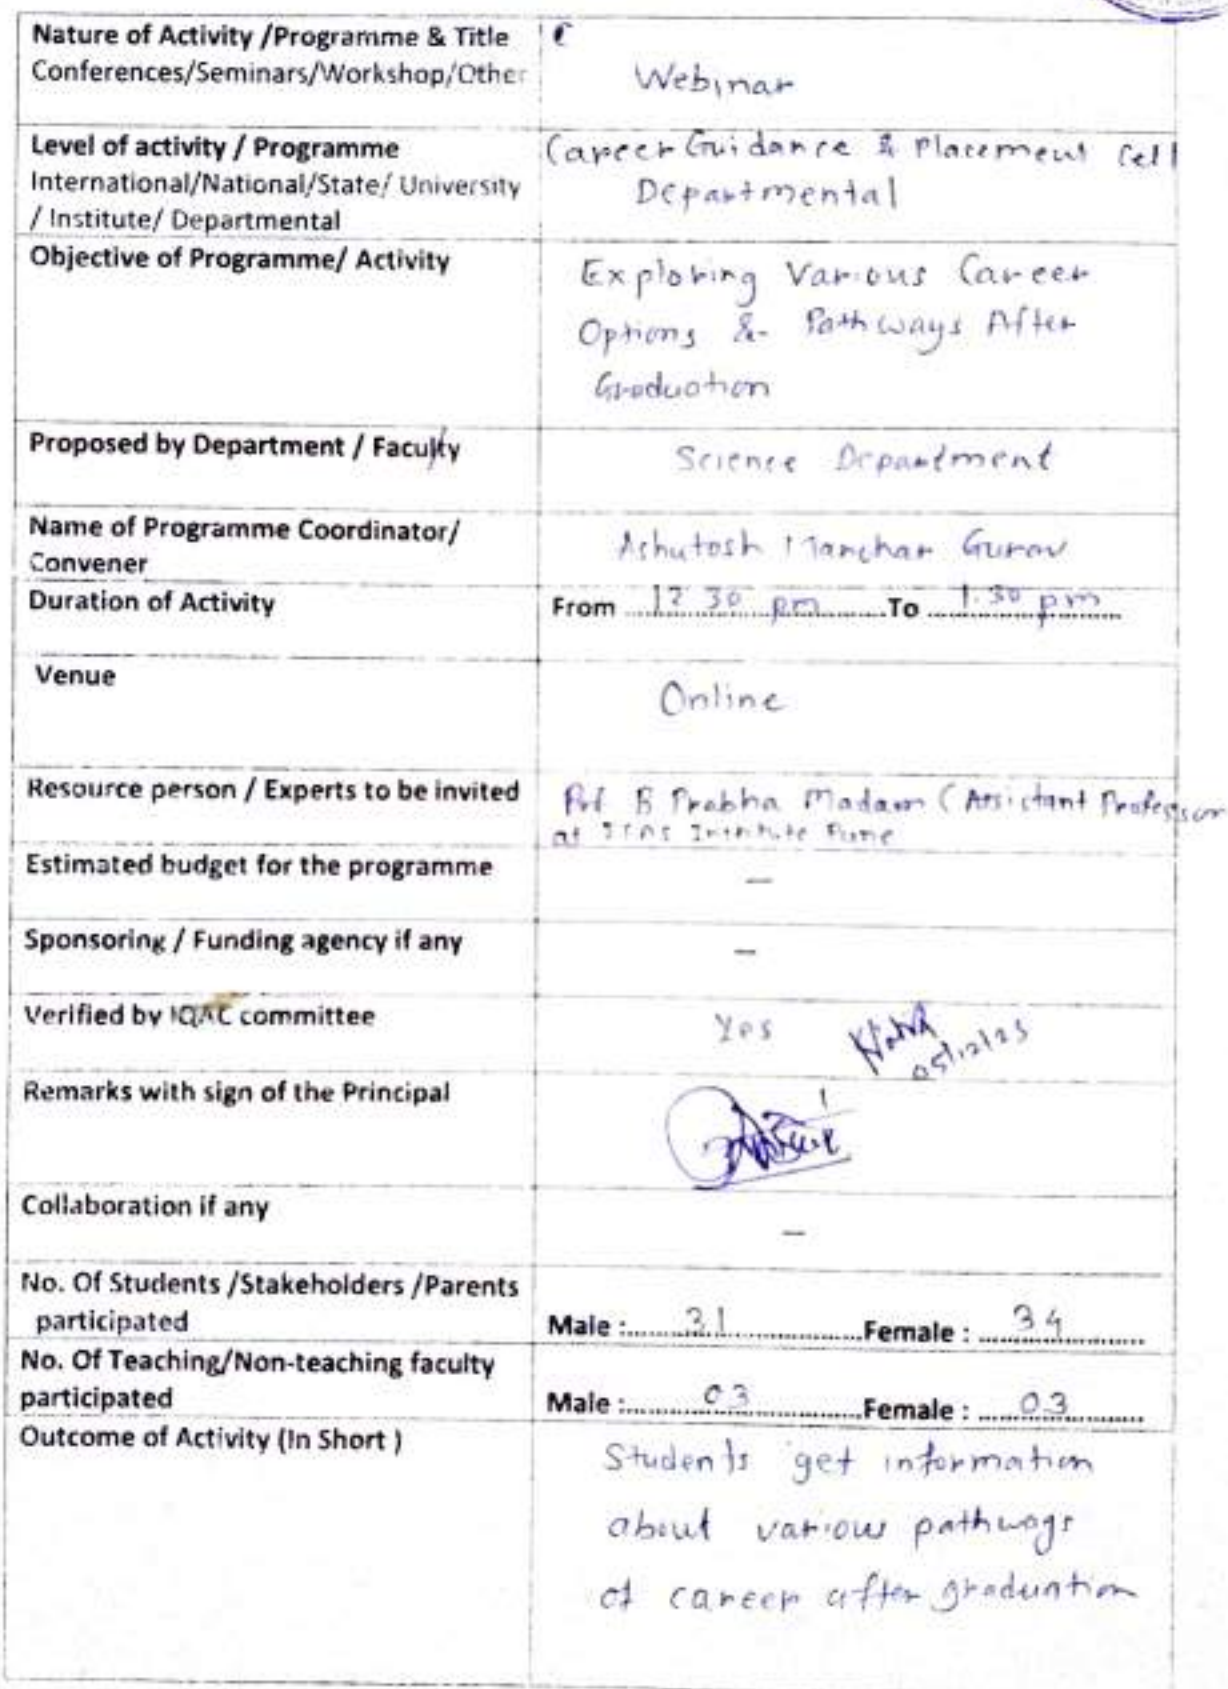 Nature of Activity /Programme & Title
Conferences/Seminars/Workshop/Other
Webinar
Level of activity / Programme
International/National/State/ University
/ Institute/ Departmental
Career Guidance & Placement Cell
Departmental
Objective of Programme/ Activity
Exploring Various Career
Options & Pathways After
Graduation
Proposed by Department / Faculty
Science Department
Name of Programme Coordinator/
Convener
Ashutosh Manohar Gurav
Duration of Activity
From 12 30 pm To 1.30 pm
Venue
Online
Resource person / Experts to be invited
Prof B Prabha Madam (Assistant Professor
at Institute Pune
Estimated budget for the programme
—
Sponsoring / Funding agency if any
—
Verified by IQAC committee
Yes
05/12/23
Remarks with sign of the Principal
Collaboration if any
—
No. Of Students /Stakeholders /Parents
participated
Male : 31 Female : 34
No. Of Teaching/Non-teaching faculty
participated
Male : 03 Female : 03
Outcome of Activity (In Short )
Students get information
about various pathways
of career after graduation